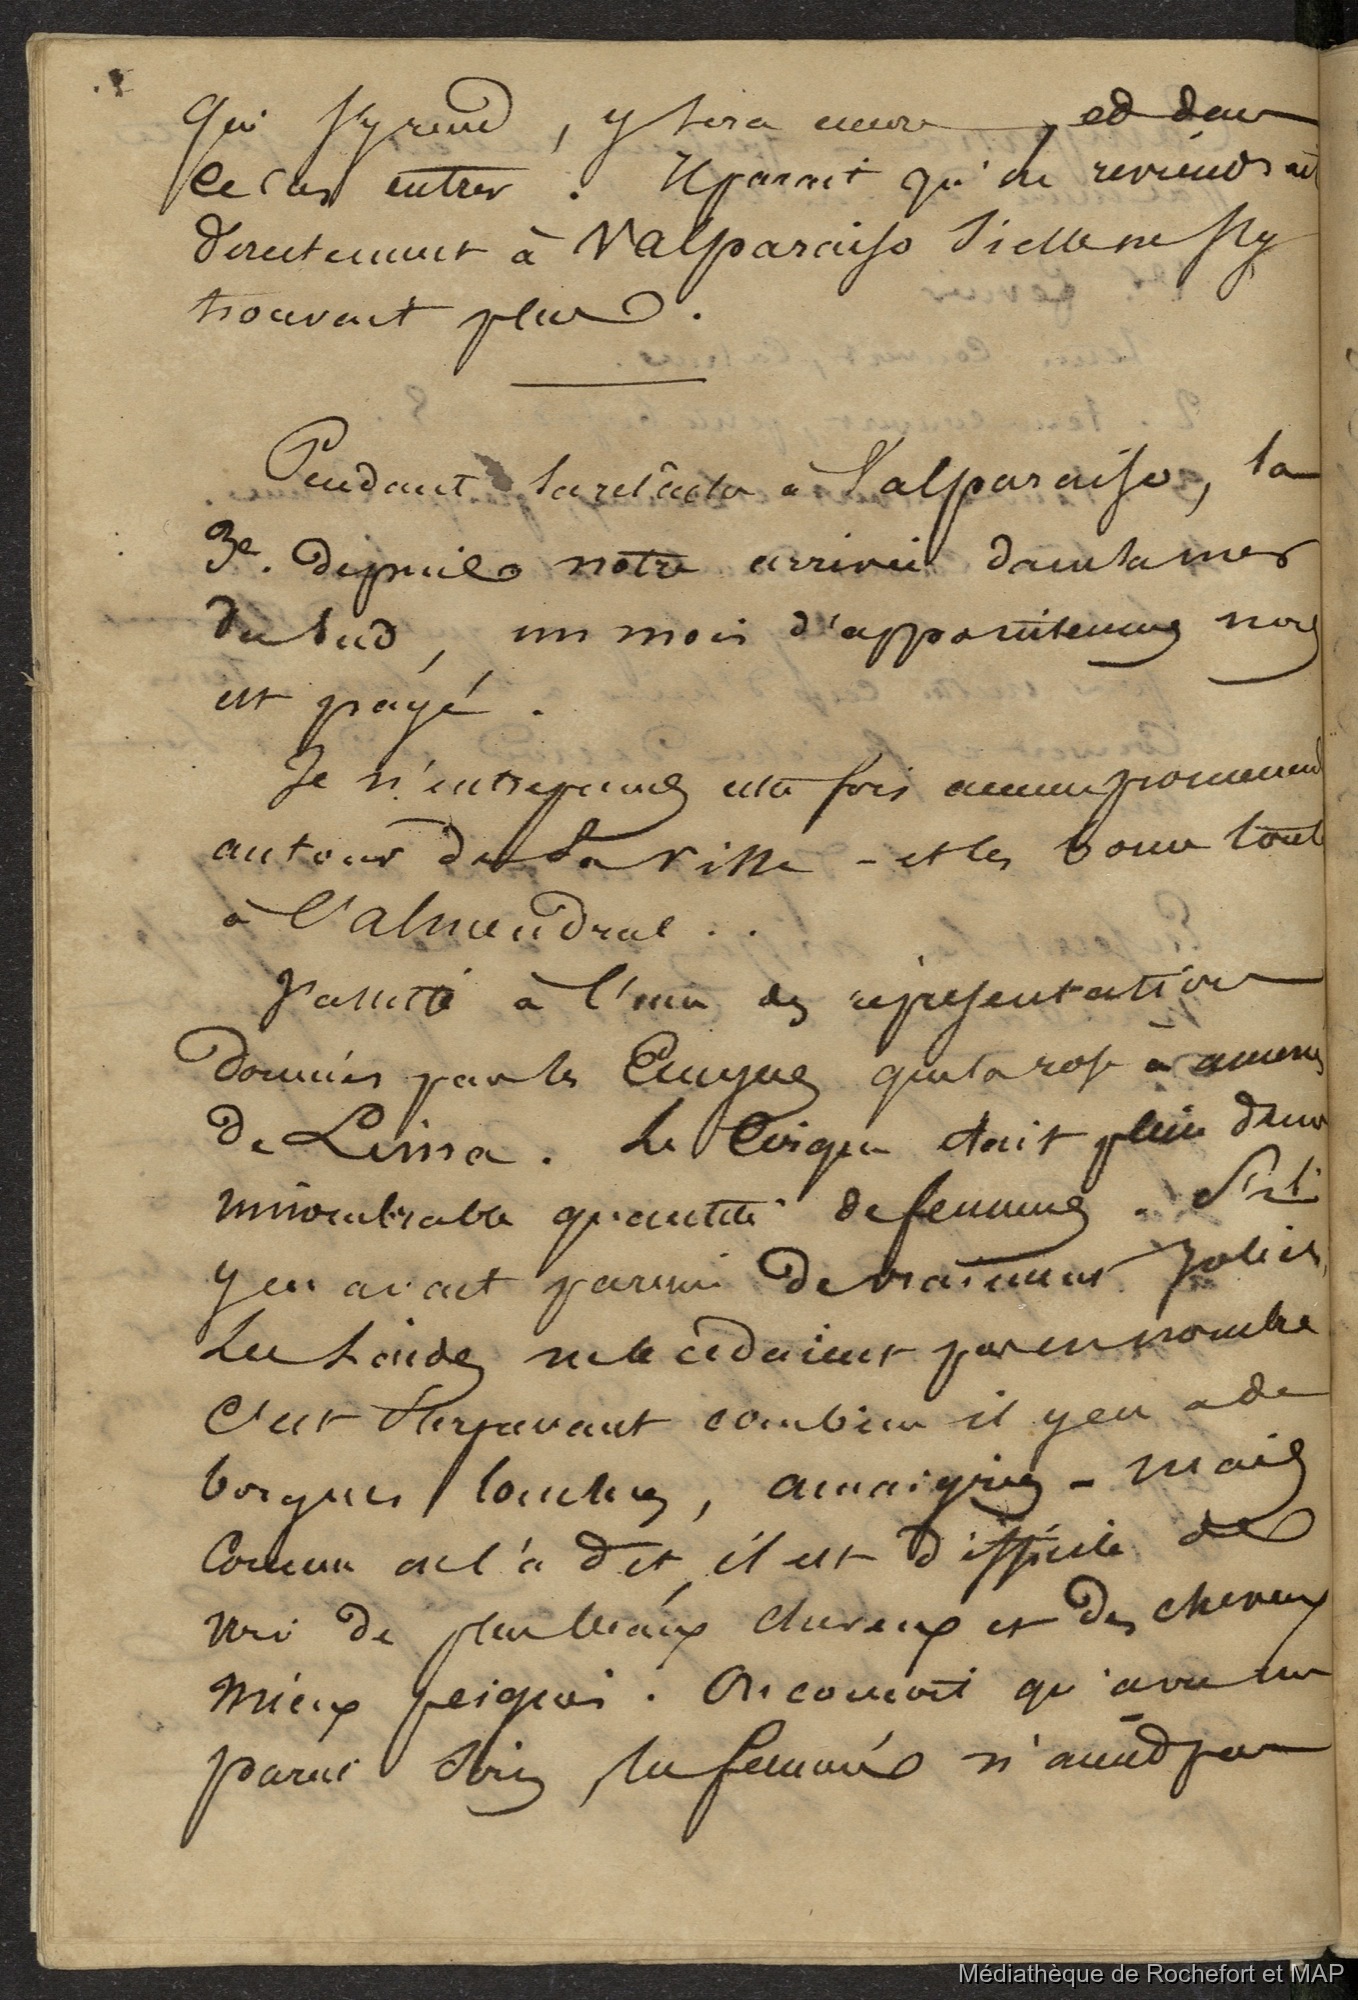 qui s'y rend, y sera encore, et dans
ce cas entrer. Il parait qu'on reviendrait
directement à Valparaiso si elle ne s'y
trouvait plus.
Pendant la relâche à Valparaiso, la
3e. depuis notre arrivée dans la mer
du Sud, un mois d'appointemens nous
est payé.
Je n'entreprends cette fois aucune promenade
autour de la ville - et les borne toutes
à l'almendral..
J'assiste à l'une des représentations
données par les Ecuyers que la rose a amenés
de Lima. Le Cirque était plein d'une
innombrable quantité de femmes. S'il
y en avait parmi de vraiment jolies,
les laides ne le cédaient pas en nombre
C'est
combien il y en a de
borgnes, louches, amaigries - mais
comme on l'a dit, il est difficile de
voir de plus beaux cheveux et des cheveux
mieux peignés. On conçoit qu'avec un
pareil soin, les femmes n'aient pas
Médiathèque de Rochefort et MAP